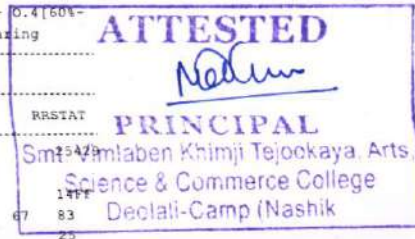 0.4[60%-
ring
ATTESTED
RRSTAT
PRINCIPAL
Smt. Vimlaben Khimji Tejookaya, Arts,
Science & Commerce College
67 83 Deolali-Camp (Nashik
25